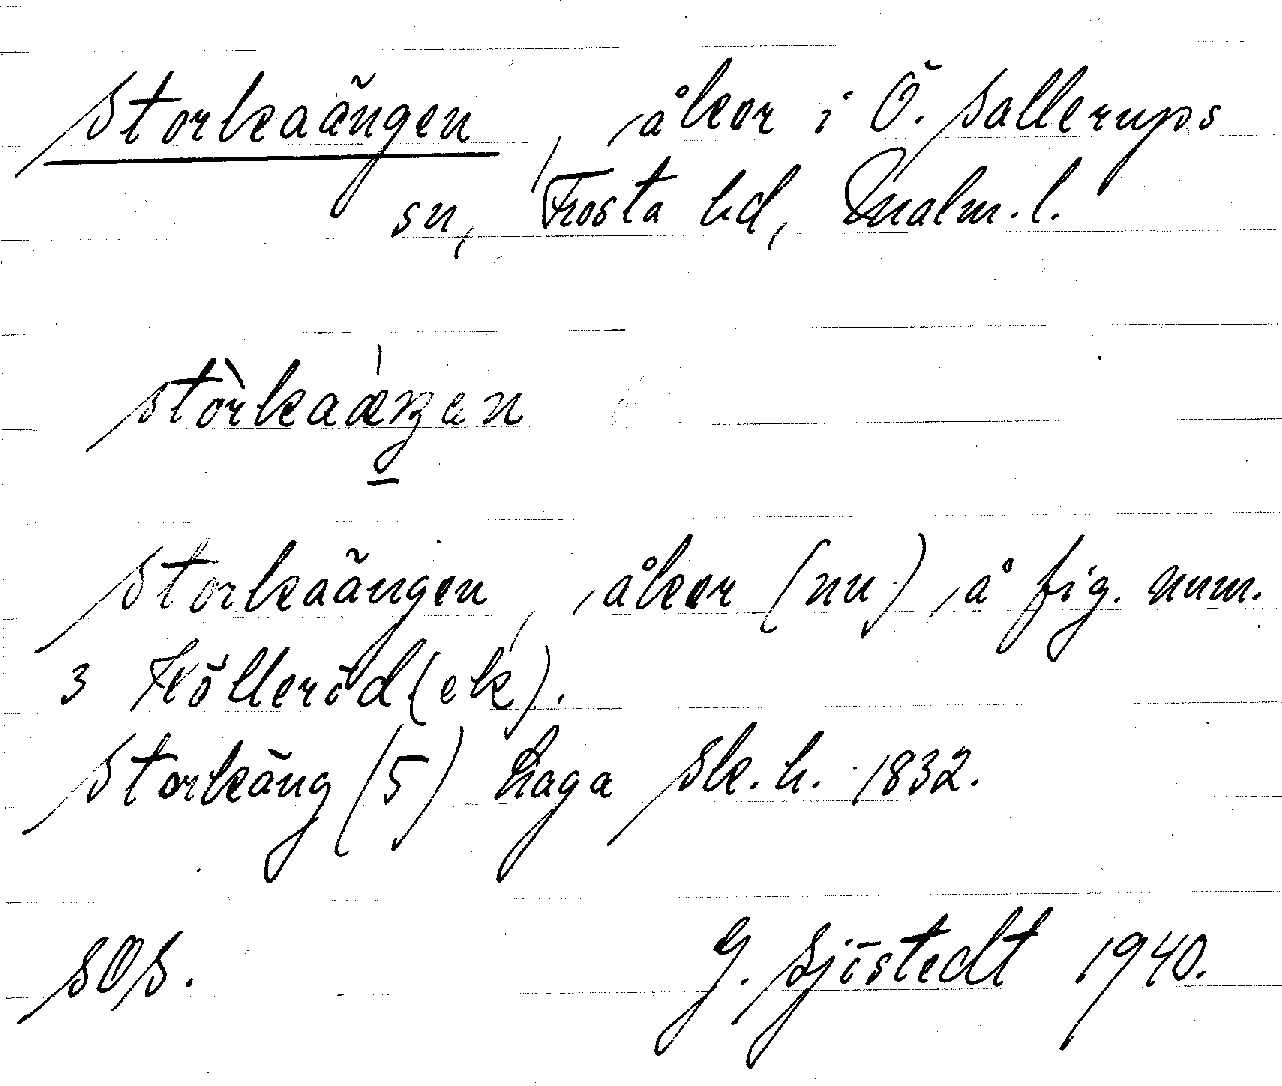 Storkaängen, åker i Ö. Sallerups
sn, Frosta hd, Malm. l.
stòrkaæ̀ŋan
Storkaängen, åker (nu) å fig. num.
3 Kölleröd (ek).
Storkäng (5) haga Sk. h. 1832.
SOS. G. Sjöstedt 1940.